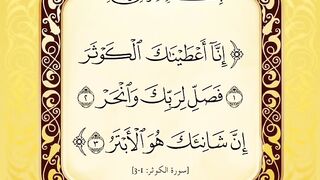 ﴿ إِنَّآ أَعْطَيْنَاكَ الْكَوْثَرَ
﴿١﴾ فَصَلِّ لِرَبِّكَ وَانْحَرْ ﴿٢﴾
إِنَّ شَانِئَكَ هُوَ الْأَبْتَرُ ﴿٣﴾ ﴾
[سورة الكوثر: 1-3]